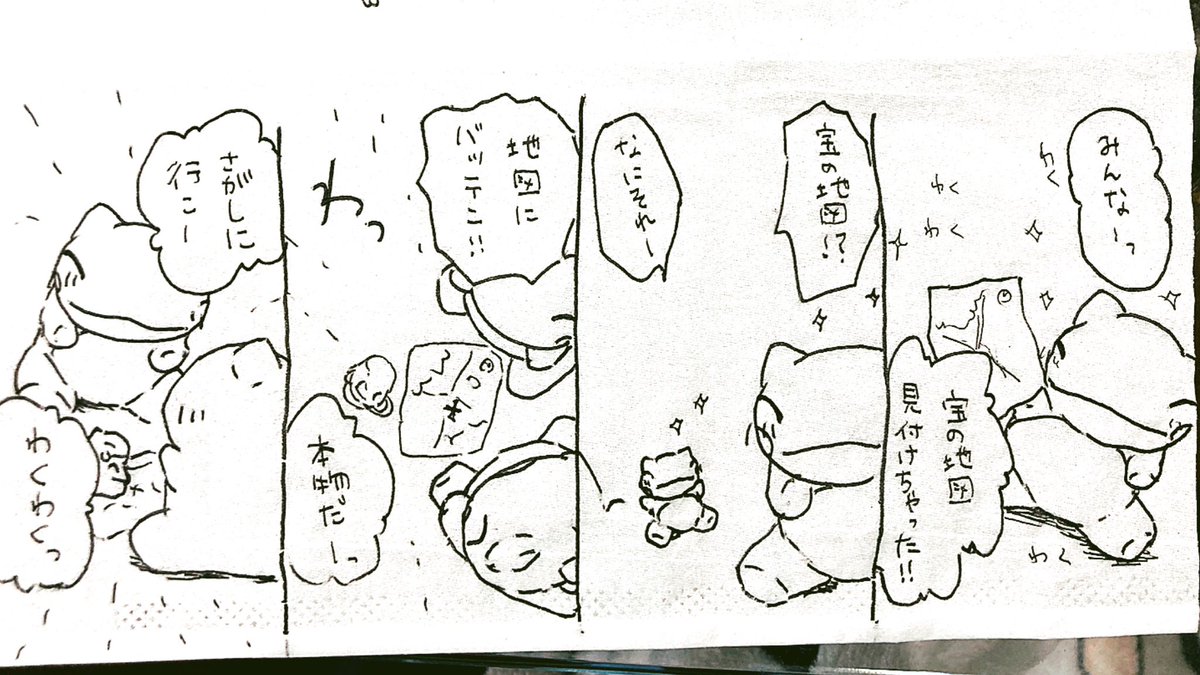 みんなーっ
わく
わく
わく
宝の地図
見付けちゃった!!
わく
宝の地図!?
なにそれー
地図に
バッテン!!
わっ
本物だーっ
さがしに
行こー
わくわくっ